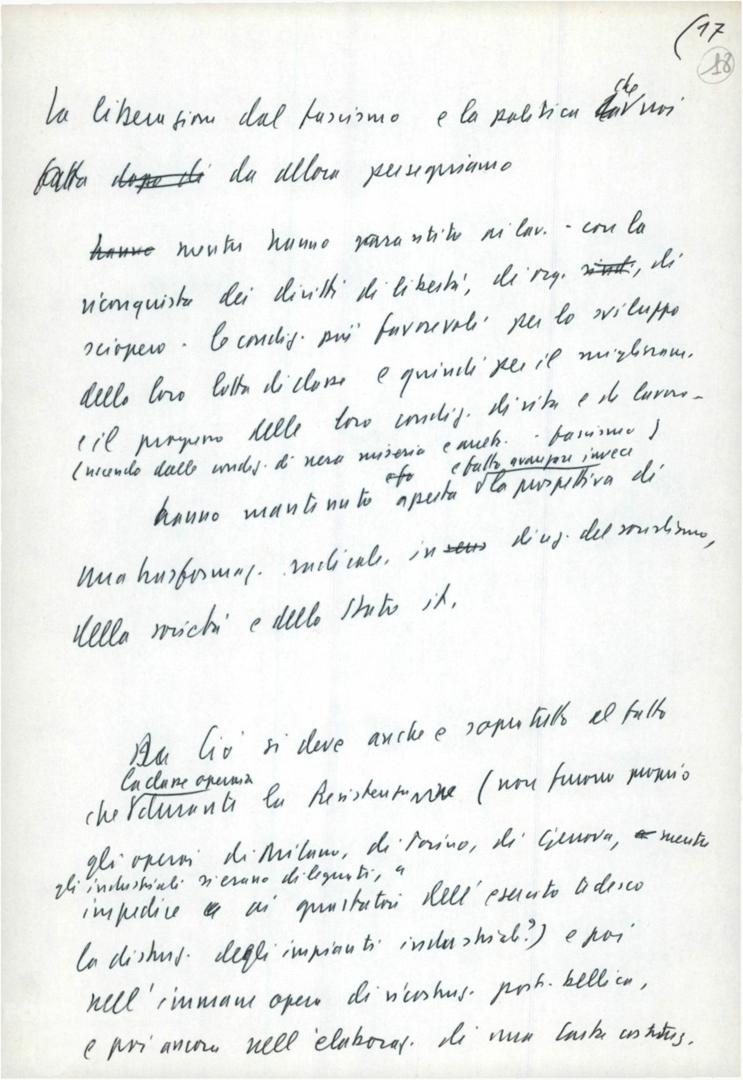 (17
18
La liberazione dal fascismo e la politica che noi
fatta dopo di da allora perseguiamo
hanno mentre hanno garantito ai lav. - con la
riconquista dei diritti di libertà, di org. sind., di
sciopero - le condiz. più favorevoli per lo sviluppo
della loro lotta di classe e quindi per il miglioram.
e il progresso delle loro condiz. di vita e di lavoro -
(uscendo dalle condiz. di nera miseria e - fascismo)
e fatto avanzare invece
hanno mantenuto aperta la prospettiva di
una trasformaz. radicale, in senso direz. del socialismo,
della società e dello Stato it.
Ciò si deve anche e sopratutto al fatto
la classe operaia
che durante la Resistenza (non furono proprio
gli operai di Milano, di Torino, di Genova, mentre
gli industriali si erano dileguati, a
impedire ai guastatori dell'esercito tedesco
la distruz. degli impianti industriali?) e poi
nell'immane opera di ricostruz. post-bellica,
e poi ancora nell'elaboraz. di una Carta costituz.